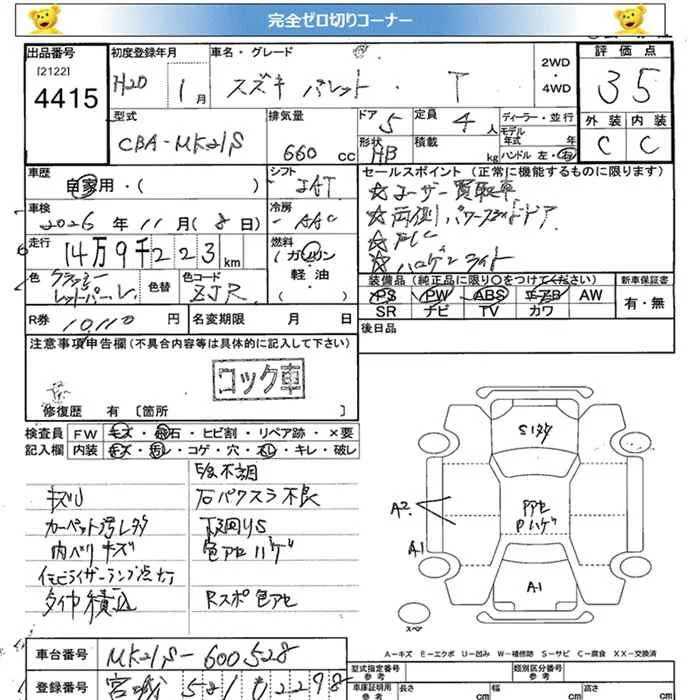 完全ゼロ切りコーナー
出品番号 初度登録年月 車名・グレード 2WD ・ 4WD 評価点
[2122]
4415 H20 1月 スズキ パレット ・ T 35
型式 排気量 ドア 定員 ディーラー・並行 外装 内装
CBA-MK21S 660cc 5 4人 モデル年式 年 C C
形状 積載 ハンドル 左・右
HB kg
車歴 シフト セールスポイント(正常に機能するものに限ります)
自家用・( ) IAT ☆ユーザー買取車
車検 冷房 ☆両側パワースライドドア
2026年11月(8日) AAC
走行 燃料 ☆
14万9千223km ガソリン ☆ハロゲンライト
軽油・
( )
色 色替 色コード 装備品(純正品に限り○をつけてください) 新車保証書
ZJR PS PW ABS エアB AW 有・無
SR ナビ TV カワ
R券 10,110円 名変期限 月 日 後日品
注意事項申告欄(不具合内容等は具体的に記入して下さい)
コック車
修復歴 有 [箇所 ]
検査員 FW キズ・飛石・ヒビ割・リペア跡・×要
記入欄 内装 キズ・汚レ・コゲ・穴・スレ・キレ・破レ
S/R不調
キズU 石バクスラ不良
カーペット汚レタ 下廻りS
内ベリキズ 色アセハゲ
イモビライザーランプ点灯
タイヤ積込 Rスポ色アセ
A2
A1
Pアセ
Pハゲ
A1
スペア
A-キズ E-エクボ U-凹み W-補修跡 S-サビ C-腐食 XX-交換済
車台番号 MK21S-600528
型式指定番号 参考 類別区分番号 参考
登録番号 宮城 581 2298
車庫証明用 参考 長さ cm 幅 cm 高さ cm